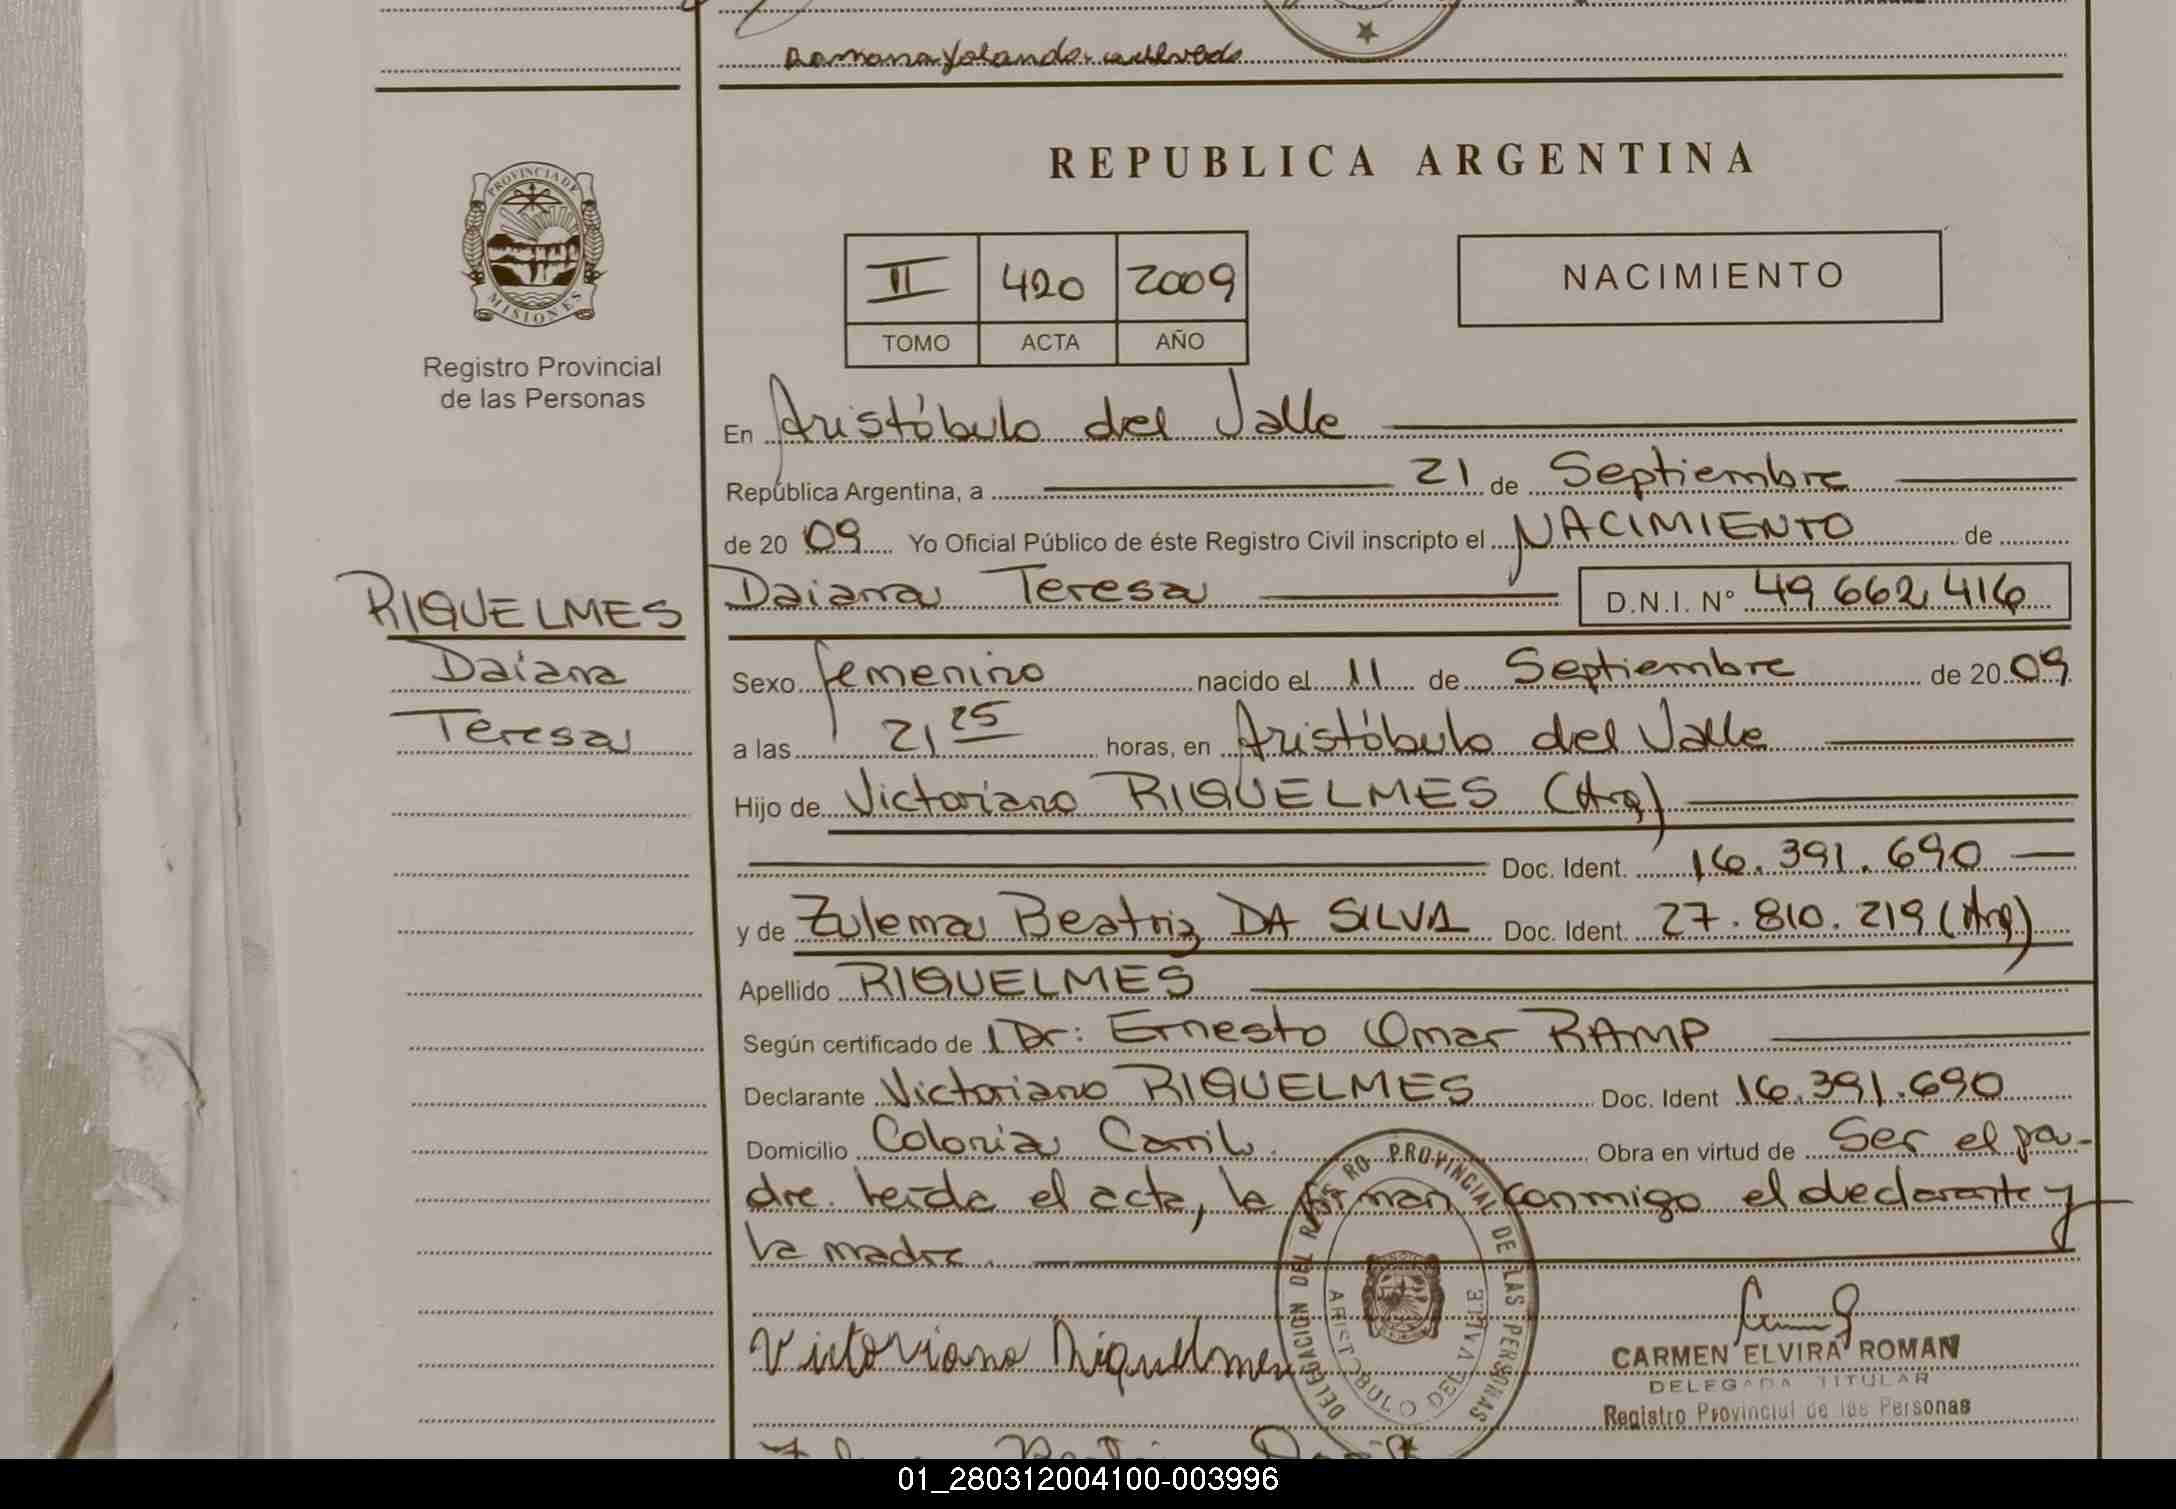 Ramona Yolanda
REPUBLICA ARGENTINA
PROVINCIA DE
MISIONES
Registro Provincial
de las Personas
II 420 2009
TOMO ACTA AÑO
NACIMIENTO
En Aristóbulo del Valle
República Argentina, a 21 de Septiembre
de 2009 Yo Oficial Público de éste Registro Civil inscripto el NACIMIENTO de
RIQUELMES
Daiana
Teresa
Daiana Teresa D.N.I. Nº 49 662 416
Sexo femenino nacido el 11 de Septiembre de 2009
a las 21 25 horas, en Aristóbulo del Valle
Hijo de Victoriano RIQUELMES (Arg)
Doc. Ident. 16.391.690
y de Zulema Beatriz DA SILVA Doc. Ident. 27.810.219 (Arg)
Apellido RIQUELMES
Según certificado de Dr: Ernesto Omar RAMP
Declarante Victoriano RIQUELMES Doc. Ident 16.391.690
Domicilio Colonia Obra en virtud de Ser el pa-
dre. leída el acta, la firman conmigo el declarante y
la madre.
DELEGACION DEL REGISTRO PROVINCIAL DE LAS PERSONAS
ARISTOBULO DEL VALLE
Victoriano Riquelmes
CARMEN ELVIRA ROMAN
DELEGADA TITULAR
Registro Provincial de las Personas
01_280312004100-003996